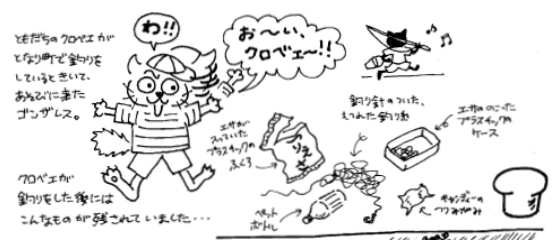 ともだちのクロベエが
となり町で釣りを
しているときいて、
あそびに来た
ゴンザレス。
わ!!
お〜い、
クロベェ〜!!
クロベエが
釣りをした後には
こんなものが残されていました・・・
エサが
入っていた
プラスチックの
ふくろ
つりえさ
釣り針のついた、
もつれた釣り糸
エサののこった
プラスチックの
ケース
ペット
ボトル
キャンディーの